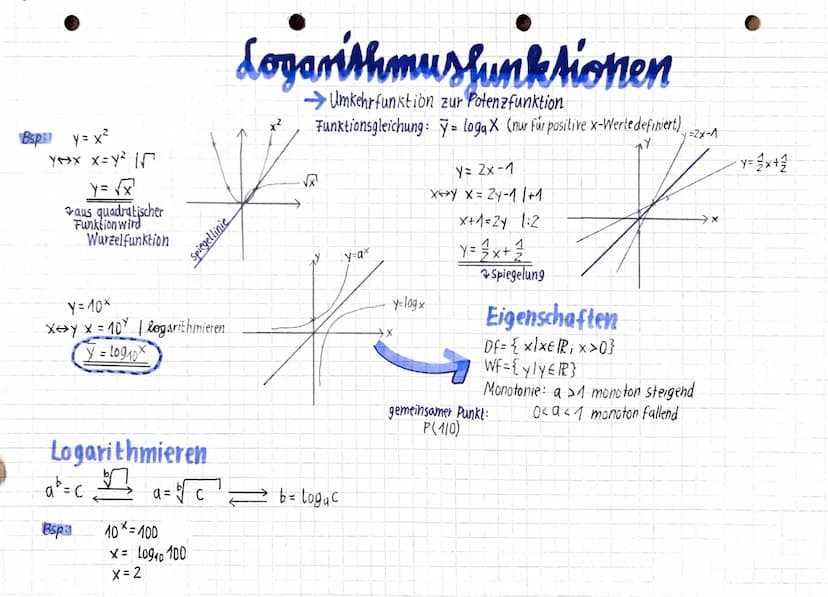 Logarithmusfunktionen
→ Umkehrfunktion zur Potenzfunktion
Funktionsgleichung: ȳ = logₐX (nur für positive x-Werte definiert)
Bsp.:
y = x²
y↔x x=y² |√
y = √x
↴ aus quadratischer
Funktion wird
Wurzelfunktion
x²
√x
Spiegellinie
y = 2x-1
x↔y x = 2y-1 |+1
x+1=2y |:2
y = 1/2 x + 1/2
↴ Spiegelung
y
y=2x-1
y=1/2 x+1/2
x
y=10ˣ
x↔y x = 10ʸ | logarithmieren
ȳ = log₁₀ˣ
y
y=aˣ
y=log x
x
Eigenschaften
Df= { x/x∈ℝ, x>0}
Wf={ y/y∈ℝ}
Monotonie: a >1 monoton steigend
0<a<1 monoton fallend
gemeinsamer Punkt:
P(1/0)
Logarithmieren
aᵇ=c ᵇ√ ⇄ a=ᵇ√c ⇄ b=logₐc
Bsp.:
10ˣ=100
x = log₁₀100
x = 2